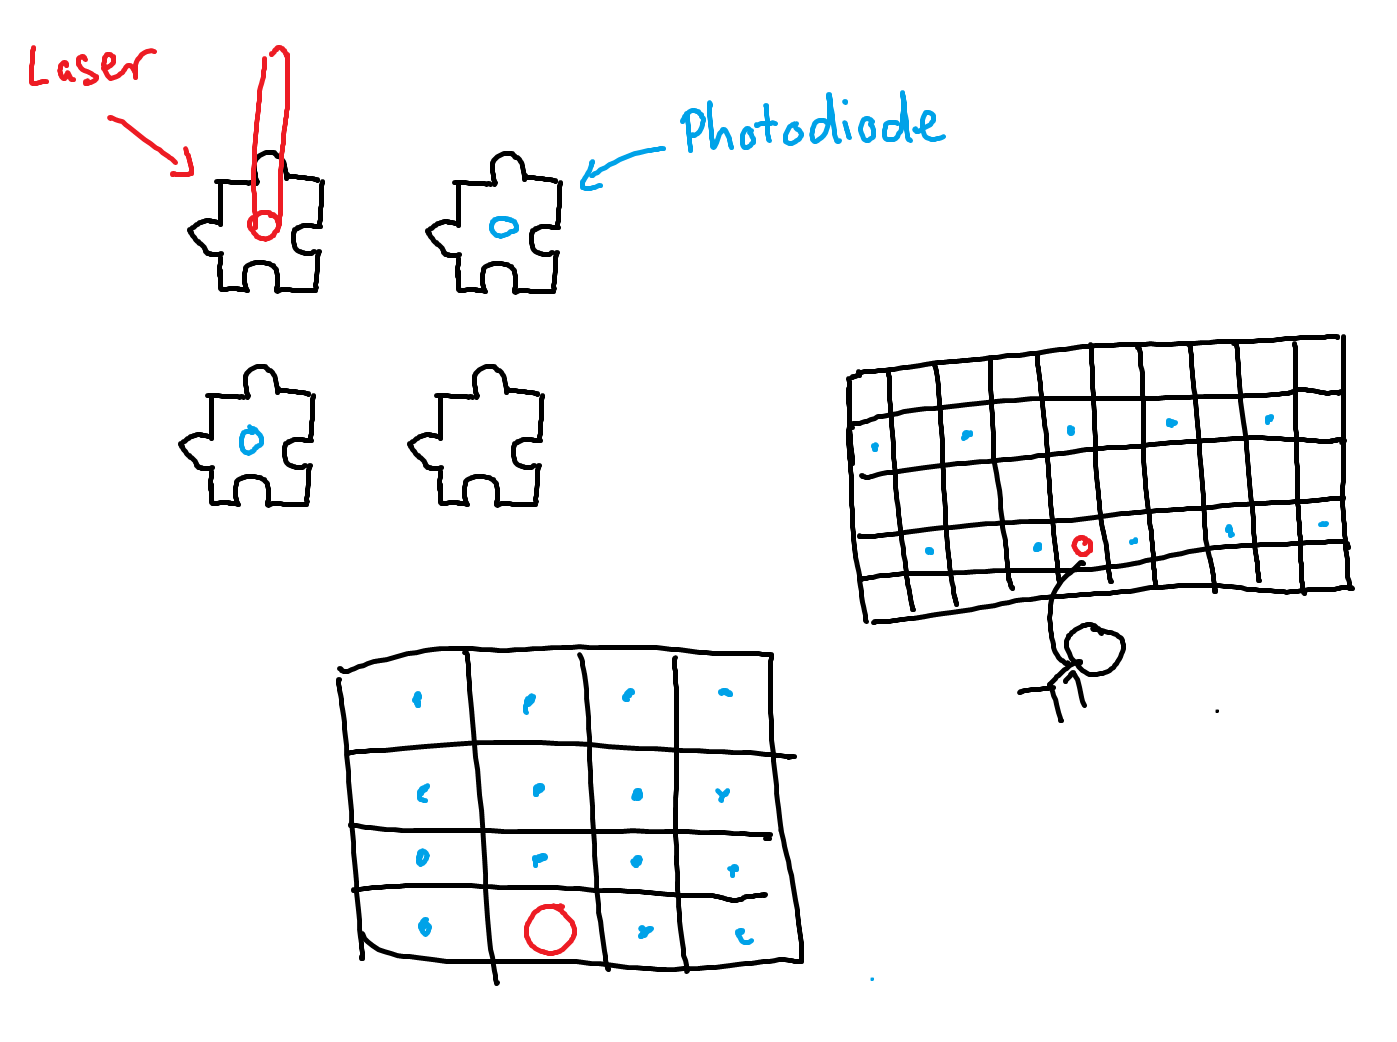 Laser
Photodiode